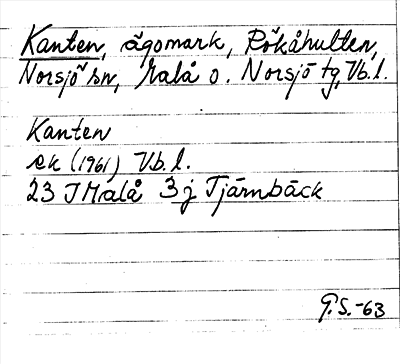 Kanten, ägomark, Rökåhulten,
Norsjö sn, Malå o. Norsjö tg, Vb.l.
Kanten
ek (1961) Vb.l.
23 I Malå 3j Tjärnbäck
G.S.-63